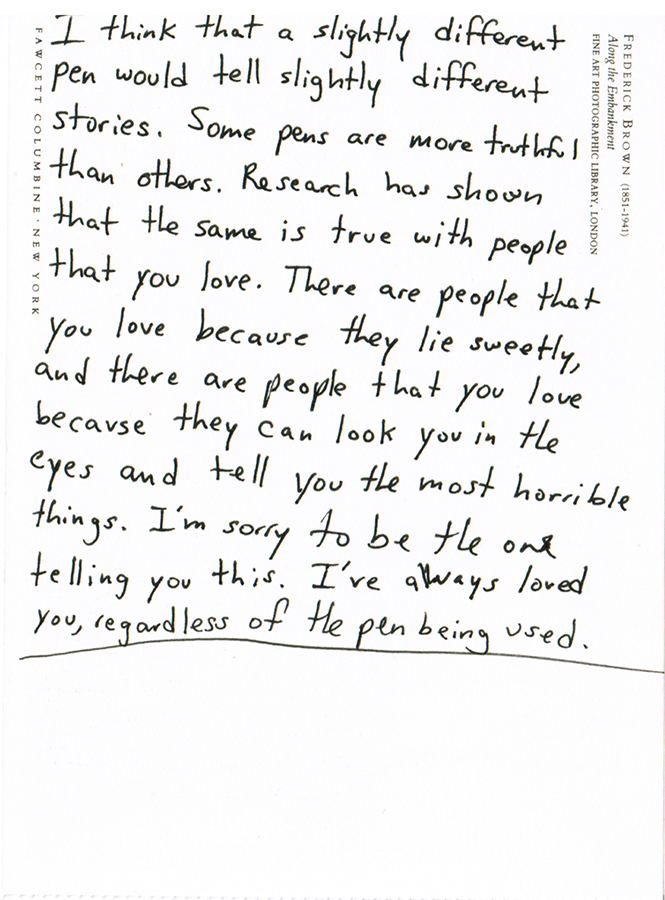 I think that a slightly different
pen would tell slightly different
stories. Some pens are more truthful
than others. Research has shown
that the same is true with people
that you love. There are people that
you love because they lie sweetly,
and there are people that you love
because they can look you in the
eyes and tell you the most horrible
things. I'm sorry to be the one
telling you this. I've always loved
you, regardless of the pen being used.
FAWCETT COLUMBINE · NEW YORK
FREDERICK BROWN (1851-1941)
Along the Embankment
FINE ART PHOTOGRAPHIC LIBRARY, LONDON